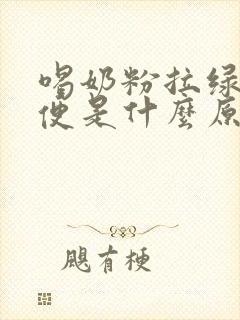 喝奶粉拉绿
便是什麼原
飓有梗